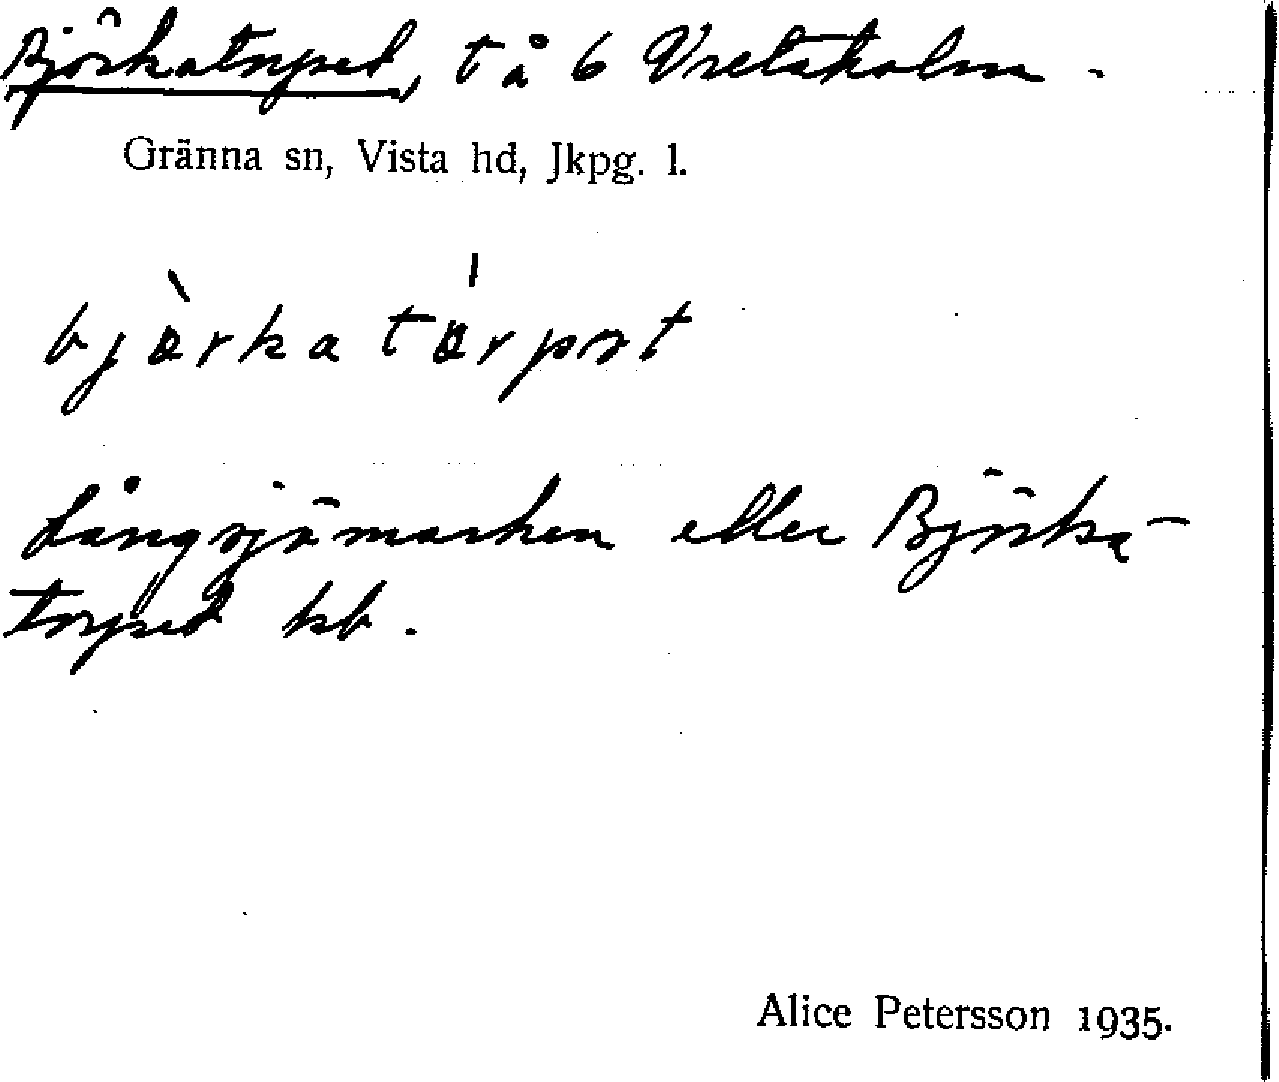 Björkatorpet, t å 6 Vretaholm.
Gränna sn, Vista hd, Jkpg. l.
bjàrka tárpət
Långsjömarken eller Björka-
torpet kb.
Alice Petersson 1935.